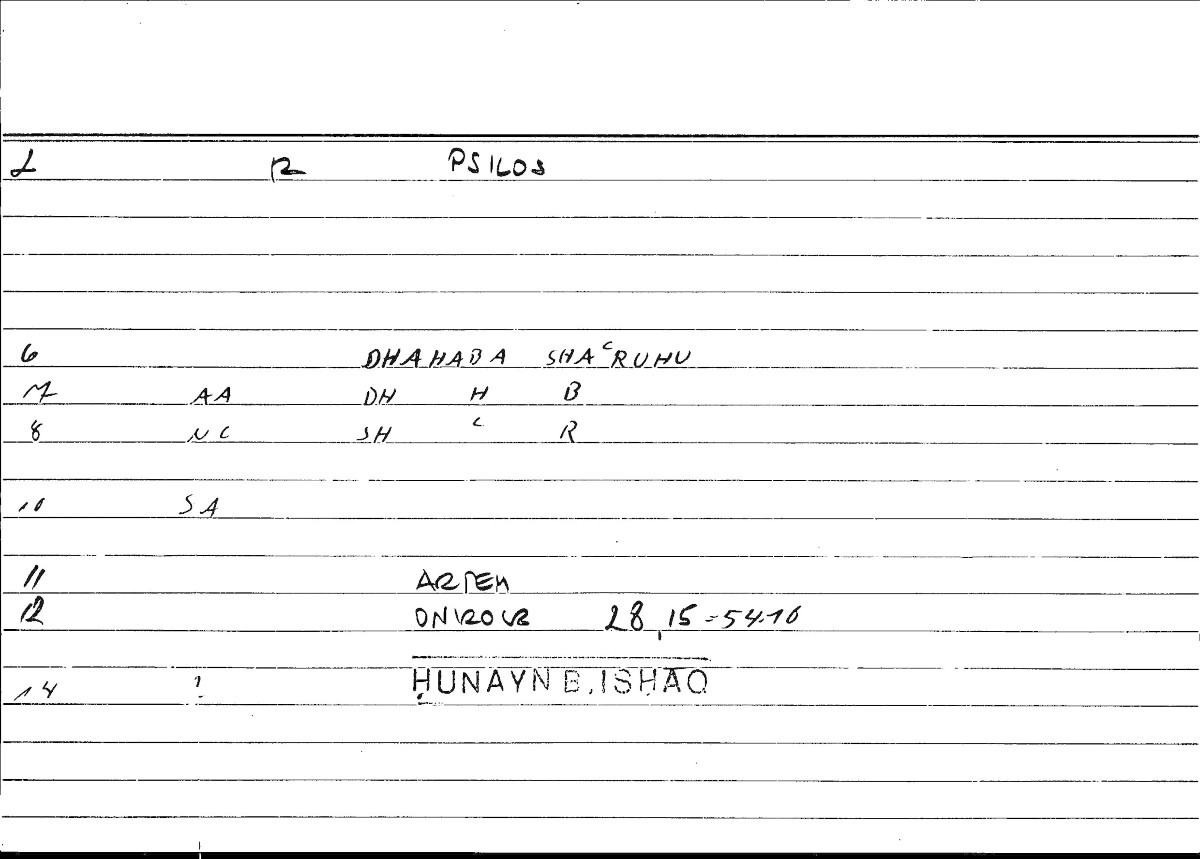 L R PSILOS
6 DHAHABA SHAʿRUHU
7 AA DH H B
8 NC SH ʿ R
10 SA
11 ARTEM
12 ONIROCR 28,15 = 54.10
14 ? ḤUNAYN B. ISḤĀQ